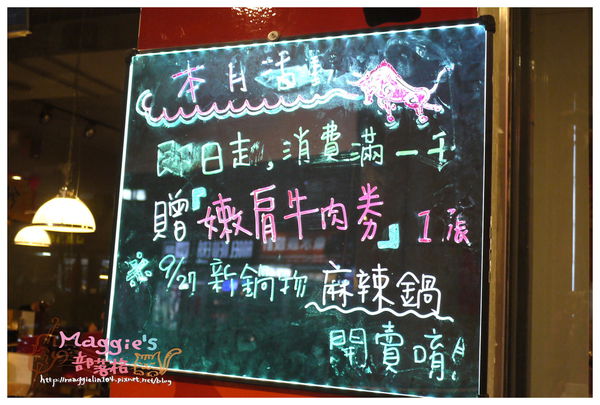 本月活動
即日起，消費滿一千
贈『嫩肩牛肉券』1張
※ 9/27 新鍋物 麻辣鍋
開賣唷！
Maggie's
部落格
http://maggielin104.pixnet.net/blog